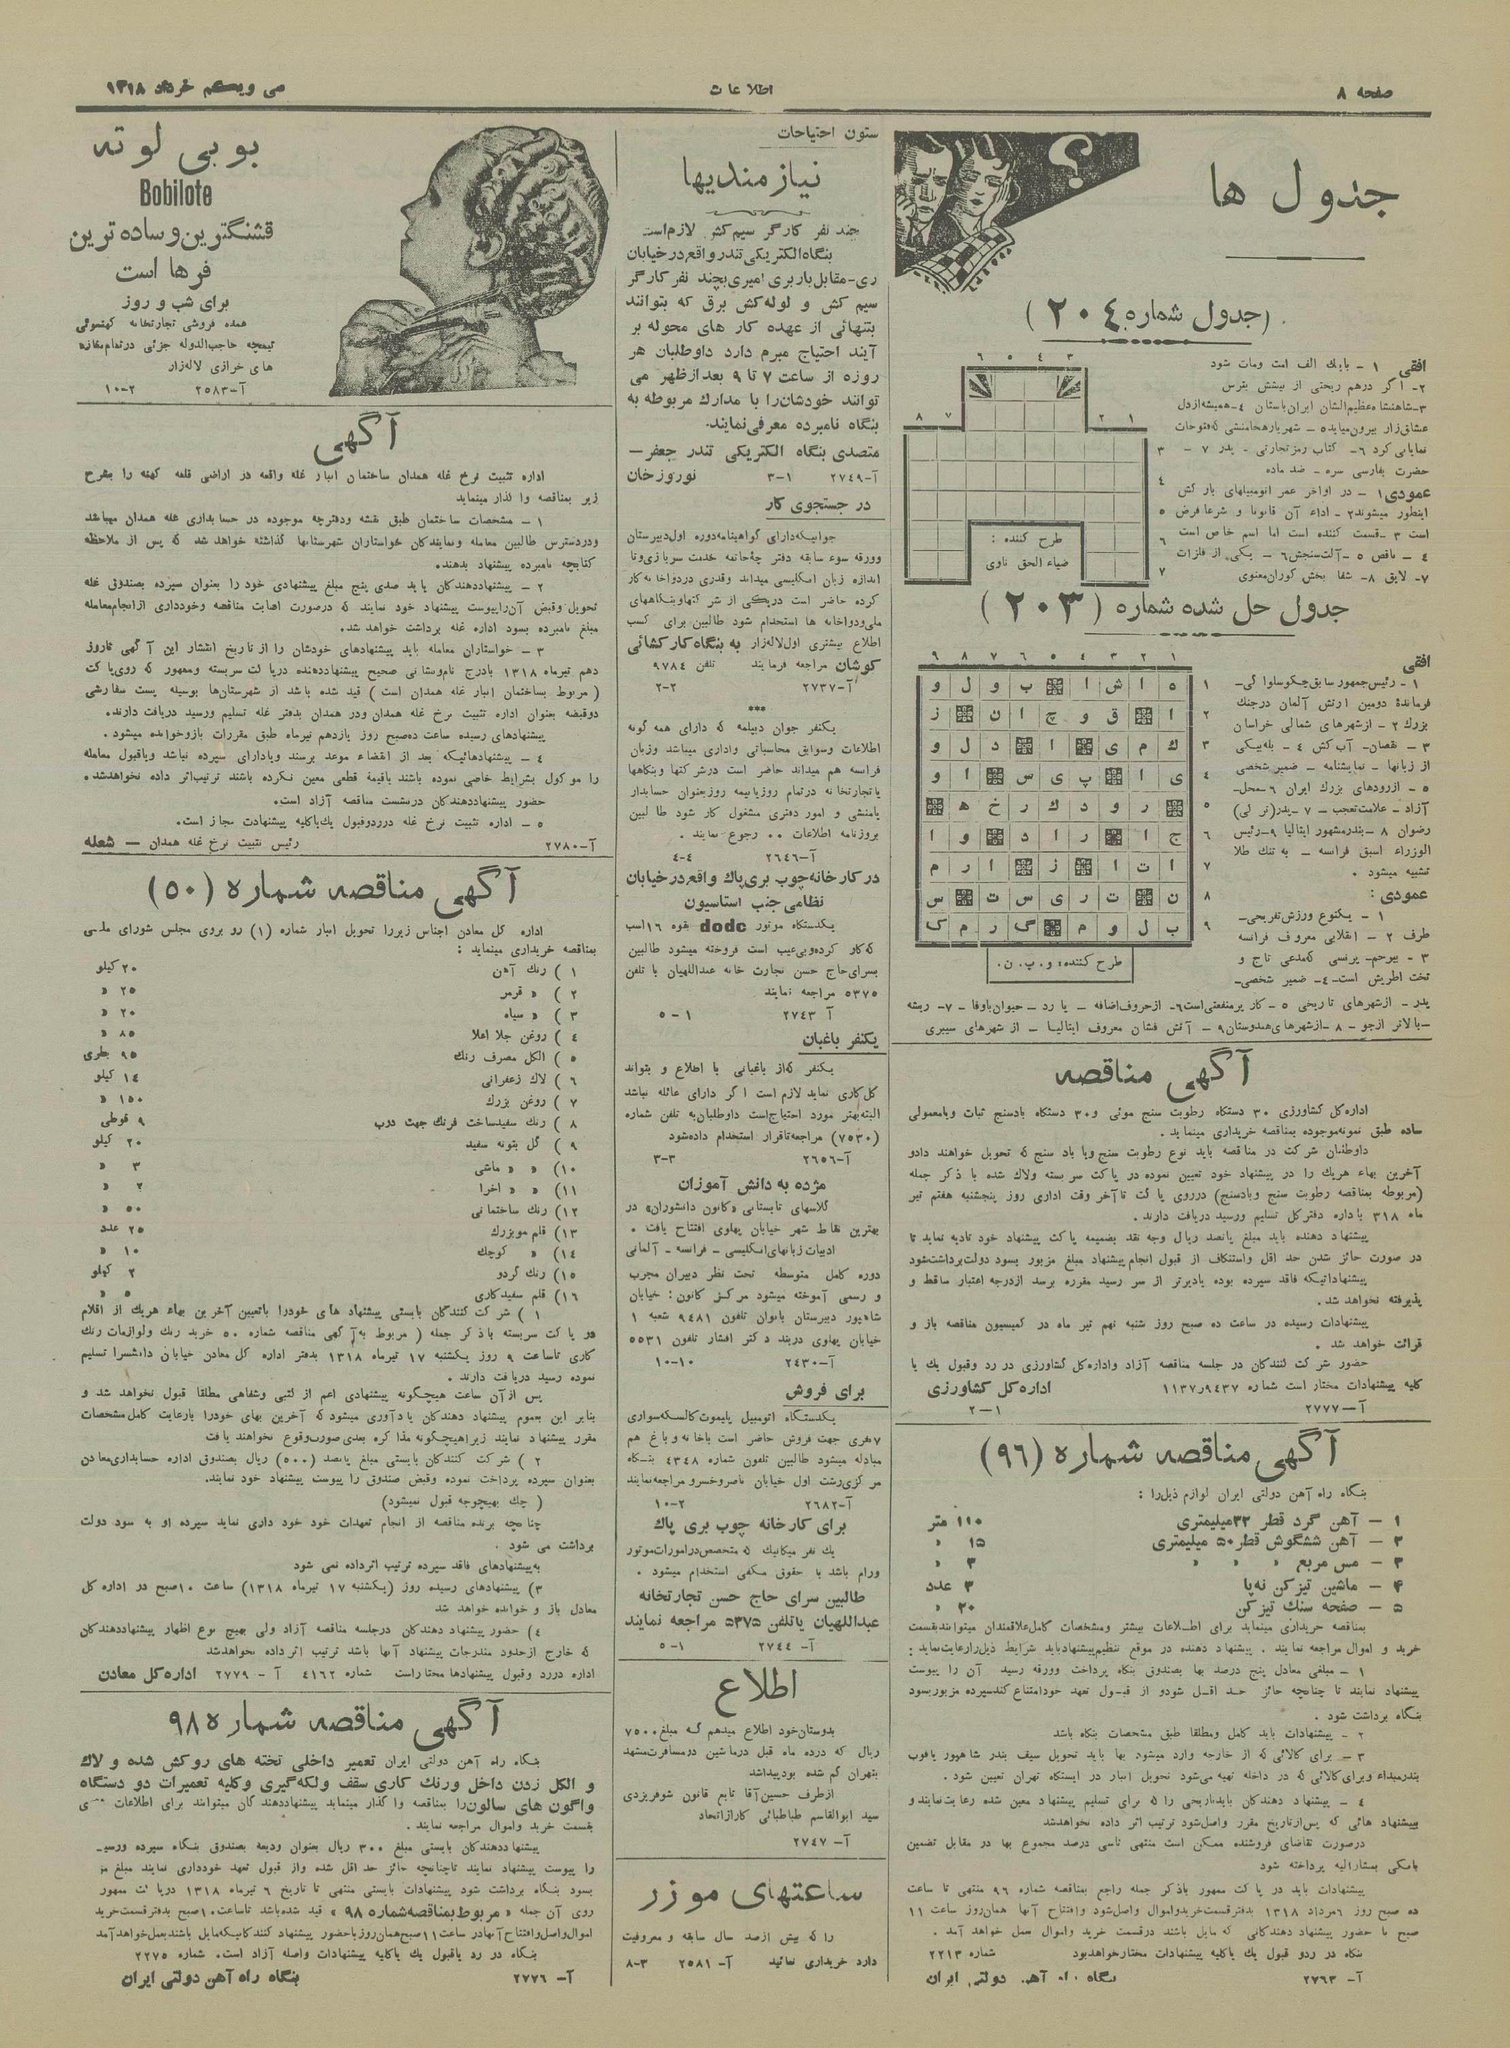 صفحه ۸
اطلاعات
سی ویکم خرداد ۱۳۱۸
جدول ها
؟
(جدول شماره ۲۰۴)
افقی ۱ - بایك الف امت ومات شود
۲- اگر درهم ریختی از نیشش بترس
۳-شاهنشاه عظیم‌الشان ایران‌باستان ۴-همیشه‌ازدل
عشاق‌زار بیرون‌میاید۵ - شهریارهخامنشی که‌فتوحات
نمایانی‌کرد ۶- کتاب رمزتجارتی. پدر ۷ -
حضرت بفارسی سره - ضد ماده
عمودی۱ - در اواخر عمر اتومبیلهای بارکش
اینطور میشوند۲ - اداء آن قانونا و شرعا فرض
است ۳ -قسمت کننده است اما اسم خاص است
۴ - ناقص ۵ -آلت‌سنجش۶ - یکی از فلزات
۷- لایق ۸- شفا بخش کوران‌معنوی
طرح کننده :
ضیاء الحق ناوی
جدول حل شده شماره (۲۰۳)
افقی
۱ - رئیس‌جمهور سابق‌چکوسلواکی-
فرماندهٔ دومین ارتش آلمان درجنك
بزرك ۲ - ازشهرهای شمالی خراسان
۳ - نقصان- آب‌کش ۴ - بله‌بیکی
از زبانها - نمایشنامه - ضمیر شخصی
۵ - ازرودهای بزرك ایران ۶-محل-
آزاد - علامت‌تعجب - ۷ -پدر(ترکی)
رضوان ۸ -بندرمشهور ایتالیا ۹-رئیس
الوزراء اسبق فرانسه - به تنك طلا
تشبیه میشود .
عمودی :
۱ - یکنوع ورزش‌تفریحی-
طرف ۲ - انقلابی معروف فرانسه
۳ - بیرحم- پرنسی که‌مدعی تاج و
تخت اطریش است-۴- ضمیر شخصی-
پدر - ازشهرهای تاریخی ۵ - کار پرمنفعتی‌است۶- ازحروف‌اضافه - یارد - حیوان‌باوفا - ۷- ریشه
-بالاتر ازجو - ۸ -ازشهرهای‌هندوستان۹ - آتش فشان معروف ایتالیا - از شهرهای سیبری
ه ا ش ا ب و ل و
ا ق و چ ا ن ز
ك م ی ا د ل و
ی ا پ ی س ا و
ر و د ك ر خ ه
ج ا ر ا د و ا
ا ت ا ز ا ر م
ن ت ر ی س ت س
ب ل و م گ ر م ك
طرح کننده؛ و. پ. ن.
آگهی مناقصه
اداره‌کل کشاورزی ۳۰ دستگاه رطوبت سنج موئی و۳۰ دستگاه بادسنج ثبات ویامعمولی
ساده طبق نمونه‌موجوده بمناقصه خریداری مینماید .
داوطلبان شرکت در مناقصه باید نوع رطوبت سنج‌ویا باد سنج که تحویل خواهند دادو
آخرین بهاء هریك را در پیشنهاد خود تعیین نموده در پاکت سر بسته ولاك شده با ذکر جمله
(مربوطه بمناقصه رطوبت سنج وبادسنج) درروی پاکت تاآخر وقت اداری روز پنجشنبه هفتم تیر
ماه ۳۱۸ باداره دفترکل تسلیم ورسید دریافت دارند.
پیشنهاد دهنده باید مبلغ پانصد ریال وجه نقد بضمیمه پاکت پیشنهاد خود تادیه نماید تا
در صورت حائز شدن حد اقل واستنکاف از قبول انجام‌پیشنهاد مبلغ مزبور بسود دولت‌برداشت‌شود
پیشنهاداتیکه فاقد سپرده بوده یادیرتر از سر رسید مقرره برسد ازدرجه اعتبار ساقط و
پذیرفته نخواهد شد.
پیشنهادات رسیده در ساعت ده صبح روز شنبه نهم تیر ماه در کمیسیون مناقصه باز و
قرائت خواهد شد .
حضور شرکت کنندگان در جلسه مناقصه آزاد واداره‌کل کشاورزی در رد وقبول یك یا
کلیه پیشنهادات مختار است شماره ۱۱۳۷ر۹۴۳۷ اداره‌کل کشاورزی
آ-۲۷۷۷ ۱-۲
آگهی مناقصه شماره (۹۶)
بنگاه راه آهن دولتی ایران لوازم ذیل‌را :
۱ - آهن گرد قطر ۳۲میلیمتری ۱۱۰ متر
۲ - آهن ششگوش قطر۵۰ میلیمتری ۱۵ »
۳ - مس مربع » » » ۳ »
۴ - ماشین تیزکن نه‌پا ۳ عدد
۵ - صفحه سنك تیزکن ۲۰ »
بمناقصه خریداری مینماید برای اطلاعات بیشتر ومشخصات کامل‌علاقمندان میتوانندبقسمت
خرید و اموال مراجعه نمایند . پیشنهاد دهنده در موقع تنظیم‌پیشنهادباید شرایط ذیل‌رارعایت‌نماید:
۱ - مبلغی معادل پنج درصد بها بصندوق بنگاه پرداخت وورقه رسید آن را پیوست
پیشنهاد نمایند تا چنانچه حائز حد اقل شودو از قبول تعهد خودامتناع کندسپرده مزبوربسود
بنگاه برداشت شود .
۲ - پیشنهادات باید کامل ومطلقا طبق مشخصات بنگاه باشد
۳ - برای کالائی که از خارجه وارد میشود بها باید تحویل سیف بندر شاهپور یافوب
بندرمبداء وبرای‌کالائی که در داخله تهیه می‌شود تحویل انبار در ایستگاه تهران تعیین شود.
۴ - پیشنهاد دهندگان بایدتاریخی را که برای تسلیم پیشنهاد معین شده رعایت‌نمایند و
پیشنهاد هائی که پس‌ازتاریخ مقرر واصل‌شود ترتیب اثر داده نخواهدشد
درصورت تقاضای فروشنده ممکن است منتهی تاسی درصد مجموع بها در مقابل تضمین
بانکی بمشارالیه پرداخته شود
پیشنهادات باید در پاکت ممهور باذکر جمله راجع بمناقصه شماره ۹۶ منتهی تا ساعت
ده صبح روز ۶مرداد ۱۳۱۸ بدفترقسمت‌خریدواموال واصل‌شود وافتتاح آنها همان‌روز ساعت ۱۱
صبح با حضور پیشنهاد دهندگانی که مایل باشند درقسمت خرید واموال بعمل خواهد آمد .
بنگاه در ردو قبول یك یاکلیه پیشنهادات مختارخواهدبود شماره ۲۲۱۳
آ- ۲۷۶۳ بنگاه راه آهن دولتی ایران
ستون احتیاجات
نیازمندیها
چند نفر کارگر سیم‌کش لازم‌است
بنگاه‌الکتریکی‌تندرواقع‌درخیابان
ری-مقابل‌باربری امیری‌بچند نفرکارگر
سیم کش و لوله‌کش برق که بتوانند
بتنهائی از عهده کار های محوله بر
آیند احتیاج مبرم دارد داوطلبان هر
روزه از ساعت ۷ تا ۹ بعدازظهر می
توانند خودشان‌را با مدارك مربوطه به
بنگاه نامبرده معرفی‌نمایند.
متصدی بنگاه الکتریکی تندر جعفر-
آ-۲۷۴۹ ۱-۳ نوروزخان
در جستجوی کار
جوانیکه‌دارای گواهینامه‌دوره اول‌دبیرستان
وورقه سوء سابقه دفترچه‌خاتمه خدمت سربازی‌وتا
اندازه زبان انگلیسی میداند وقدری دردواخانه‌کار
کرده حاضر است دریکی از شرکتهاوبنگاههای
ملی‌ودواخانه ها استخدام شود طالبین برای کسب
اطلاع بیشتری اول‌لاله‌زار به بنگاه کارکشائی
کوشان مراجعه فرمایند تلفن ۹۷۸۴
آ-۲۷۳۷ ۲-۲
***
یکنفر جوان دیپلمه که دارای همه گونه
اطلاعات وسوابق محاسباتی واداری میباشد وزبان
فرانسه هم میداند حاضر است درشرکتها وبنگاهها
یاتجارتخانه درتمام روزیانیمه روزبعنوان حسابدار
یامنشی و امور دفتری مشغول کار شود طالبین
بروزنامه اطلاعات ۰۰ رجوع نمایند .
آ-۲۶۴۶ ۴-۴
درکارخانه چوب بری پاك واقع‌درخیابان
نظامی جنب استاسیون
یکدستگاه موتور dodc بقوه ۱۶اسب
که‌کار کرده‌وبی‌عیب است فروخته میشود طالبین
بسرای‌حاج حسن تجارت خانه عبداللهیان با تلفن
۵۳۷۵ مراجعه نمایند
آ ۲۷۴۳ ۱-۵
یکنفر باغبان
یکنفر که‌از باغبانی با اطلاع و بتواند
گل‌کاری نماید لازم است اگر دارای عائله نباشد
البته‌بهتر مورد احتیاج‌است داوطلبان‌به تلفن شماره
(۷۵۳۰) مراجعه‌تاقرار استخدام داده‌شود
آ-۲۶۵۶ ۳-۳
مژده به دانش آموزان
کلاسهای تابستانی «کانون دانشوران» در
بهترین نقاط شهر خیابان پهلوی افتتاح یافت .
ادبیات زبانهای‌انگلیسی - فرانسه - آلمانی
دوره کامل متوسطه تحت نظر دبیران مجرب
و رسمی آموخته میشود مرکز کانون: خیابان
شاهپور دبیرستان بانوان تلفون ۹۴۸۱ شعبه ۱
خیابان پهلوی دربند دکتر افشار تلفون ۵۵۳۱
آ-۲۴۳۰ ۱۰-۱۰
برای فروش
یکدستگاه اتومبیل پلیموت‌کالسکه‌سواری
۷نفری جهت فروش حاضر است باخانه وباغ هم
مبادله میشود طالبین تلفون شماره ۴۳۴۸ بنگاه
مرکزی‌رشت اول خیابان ناصرخسرو مراجعه‌نمایند
آ-۲۶۸۲ ۲-۱۰
برای کارخانه چوب بری پاك
یك نفر میکانیك که متخصص‌درامورات‌موتور
ورام باشد با حقوق مکفی استخدام میشود .
طالبین سرای حاج حسن تجارتخانه
عبداللهیان یاتلفن ۵۳۷۵ مراجعه نمایند
آ- ۲۷۴۴ ۱-۵
اطلاع
بدوستان‌خود اطلاع میدهم که مبلغ۷۵۰۰
ریال که درده ماه قبل درماشین درمسافرت‌مشهد
بتهران گم شده بودپیداشد
ازطرف حسین‌آقا تابع قانون شوفریزدی
سید ابوالقاسم طباطبائی کارازاتحاد
آ- ۲۷۴۷
ساعتهای موزر
را که بیش ازصد سال سابقه و معروفیت
دارد خریداری نمائید آ- ۲۵۸۱ ۳-۸
بوبی لوته
Bobilote
قشنگترین‌وساده‌ترین
فرها است
برای شب و روز
عمده فروشی تجارتخانه کهنموئی
تیمچه حاجب‌الدوله جزئی درتمام‌مغازه
های خرازی لاله‌زار
آ-۲۵۸۳ ۲-۱۰
آگهی
اداره تثبیت نرخ غله همدان ساختمان انبار غله واقعه در اراضی قلعه کهنه را بشرح
زیر بمناقصه واگذار مینماید
۱ - مشخصات ساختمان طبق نقشه ودفترچه موجوده در حسابداری غله همدان میباشد
ودردسترس طالبین معامله ونمایندگان خواستاران شهرستانها گذاشته خواهد شد که پس از ملاحظه
کتابچه نامبرده پیشنهاد بدهند.
۲ - پیشنهاددهندگان باید صدی پنج مبلغ پیشنهادی خود را بعنوان سپرده بصندوق غله
تحویل‌وقبض آن‌راپیوست پیشنهاد خود نمایند که درصورت اصابت مناقصه وخودداری ازانجام‌معامله
مبلغ نامبرده بسود اداره غله برداشت خواهد شد.
۳ - خواستاران معامله باید پیشنهادهای خودشان را از تاریخ انتشار این آگهی تاروز
دهم تیرماه ۱۳۱۸ بادرج نام‌ونشانی صحیح پیشنهاددهنده درپاکت سربسته وممهور که روی‌پاکت
(مربوط بساختمان انبار غله همدان است) قید شده باشد از شهرستان‌ها بوسیله پست سفارشی
دوقبضه بعنوان اداره تثبیت نرخ غله همدان ودر همدان بدفتر غله تسلیم ورسید دریافت دارند.
پیشنهادهای رسیده ساعت ده‌صبح روز یازدهم تیرماه طبق مقررات بازوخوانده میشود.
۴ - پیشنهادهائیکه بعد از انقضاء موعد برسند ویادارای سپرده نباشد ویاقبول معامله
را موکول بشرایط خاصی نموده باشند یاقیمة قطعی معین نکرده باشند ترتیب‌اثر داده نخواهدشد.
حضور پیشنهاددهندگان درنشست مناقصه آزاد است.
۵ - اداره تثبیت نرخ غله درردوقبول یك‌یاکلیه پیشنهادت مجاز است.
آ-۲۷۸۰ رئیس تثبیت نرخ غله همدان - شعله
آگهی مناقصه شماره (۵۰)
اداره کل معادن اجناس زیررا تحویل انبار شماره (۱) رو بروی مجلس شورای ملی
بمناقصه خریداری مینماید :
۱ ) رنك آهن ۲۰ کیلو
۲ ) » قرمز ۲۵ »
۳ ) » سیاه ۲۰ »
۴ ) روغن جلا اعلا ۸۵ »
۵ ) الکل مصرف رنك ۹۵ بطری
۶ ) لاك زعفرانی ۱۴ کیلو
۷ ) روغن بزرك ۱۵۰ »
۸ ) رنك سفیدساخت فرنك جهت درب ۹ قوطی
۹ ) گل بتونه سفید ۲۰ کیلو
۱۰) » » ماشی ۳ »
۱۱) » » اخرا ۲ »
۱۲) رنك ساختمانی ۵۰ »
۱۳) قلم موبزرك ۲۵ عدد
۱۴) » کوچك ۱۰ »
۱۵) رنك گردو ۲ کیلو
۱۶) قلم سفیدکاری ۵ »
۱ ) شرکت کنندگان بایستی پیشنهاد های خودرا باتعیین آخرین بهاء هریك از اقلام
در پاکت سربسته باذکر جمله (مربوط به‌آگهی مناقصه شماره ۵۰ خرید رنك ولوازمات رنك
کاری تاساعت ۹ روز یکشنبه ۱۷ تیرماه ۱۳۱۸ بدفتر اداره کل معادن خیابان دانشسرا تسلیم
نموده رسید دریافت دارند .
پس ازآن ساعت هیچگونه پیشنهادی اعم از کتبی وشفاهی مطلقا قبول نخواهد شد و
بنابر این بعموم پیشنهاد دهندگان یادآوری میشود که آخرین بهای خودرا بارعایت کامل‌مشخصات
مقرر پیشنهاد نمایند زیراهیچگونه مذاکره بعدی صورت‌وقوع نخواهند یافت
۲ ) شرکت کنندگان بایستی مبلغ پانصد (۵۰۰) ریال بصندوق اداره حسابداری‌معادن
بعنوان سپرده پرداخت نموده وقبض صندوق را پیوست پیشنهاد خود نمایند.
( چك بهیچوجه قبول نمیشود)
چنانچه برنده مناقصه از انجام تعهدات خود خود داری نماید سپرده او به سود دولت
برداشت می شود .
به‌پیشنهادهای فاقد سپرده ترتیب اثرداده نمی شود
۳) پیشنهادهای رسیده روز (یکشنبه ۱۷ تیرماه ۱۳۱۸) ساعت ۱۰صبح در اداره کل
معادل باز و خوانده خواهد شد
۴) حضور پیشنهاد دهندگان درجلسه مناقصه آزاد ولی بهیچ نوع اظهار پیشنهاددهندگان
که خارج ازحدود مندرجات پیشنهاد آنها باشد ترتیب اثرداده نخواهدشد
اداره دررد وقبول پیشنهادها مختاراست شماره ۴۱۶۲ آ - ۲۷۷۹ اداره‌کل معادن
آگهی مناقصه شماره ۹۸
بنگاه راه آهن دولتی ایران تعمیر داخلی تخته های روکش شده و لاك
و الکل زدن داخل ورنك کاری سقف ولکه‌گیری وکلیه تعمیرات دو دستگاه
واگون های سالون‌را بمناقصه واگذار مینماید پیشنهاددهندگان میتوانند برای اطلاعات
بقسمت خرید واموال مراجعه نمایند .
پیشنهاددهندگان بایستی مبلغ ۳۰۰ ریال بعنوان ودیعه بصندوق بنگاه سپرده ورسید
را پیوست پیشنهاد نمایند تاچنانچه حائز حداقل شده واز قبول تعهد خودداری نمایند مبلغ
بسود بنگاه برداشت شود پیشنهادات بایستی منتهی تا تاریخ ۶ تیرماه ۱۳۱۸ درپاکت ممهور
روی آن جمله «مربوط بمناقصه‌شماره ۹۸» قید شده‌باشد تاساعت۱۰صبح بدفترقسمت‌خرید
اموال‌واصل‌وافتتاح آنهادر ساعت ۱۱صبح‌همان‌روزباحضور پیشنهاد کنندگانیکه‌مایل باشندبعمل‌خواهدآمد
بنگاه در رد یاقبول یك یاکلیه پیشنهادات واصله آزاد است. شماره ۲۲۷۵
آ- ۲۷۷۶ بنگاه راه آهن دولتی ایران